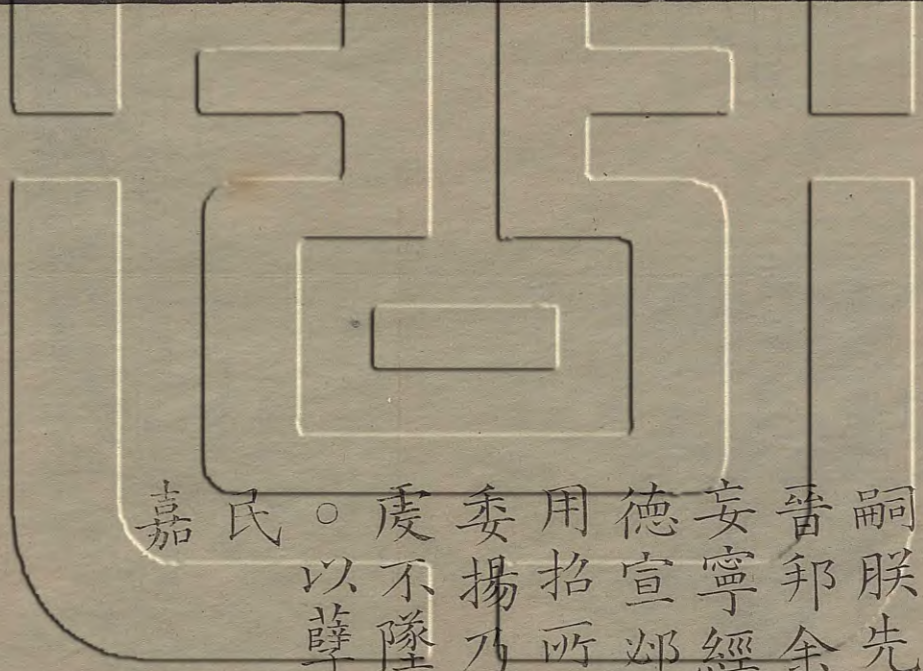 嗣朕先
晉邦余
妄寧經
德宣䢿
用招所
委揚乃
虔不墜
。以孽
民
嘉